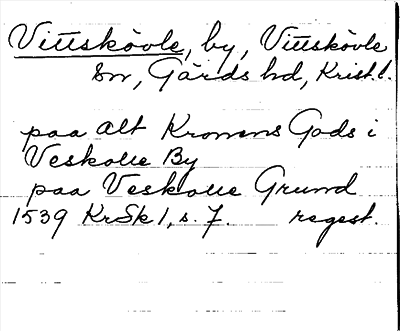 Vittskövle, by, Vittskövle
sn, Gärds hd, Krist. l.
paa alt Kronens Gods i
Veskølle By
paa Veskølle Grund
1539 KrSk 1, s. 7. regest.